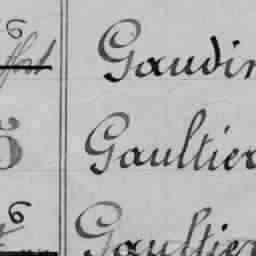 6 Gaudin
5 Gaultier
6 Gaultier